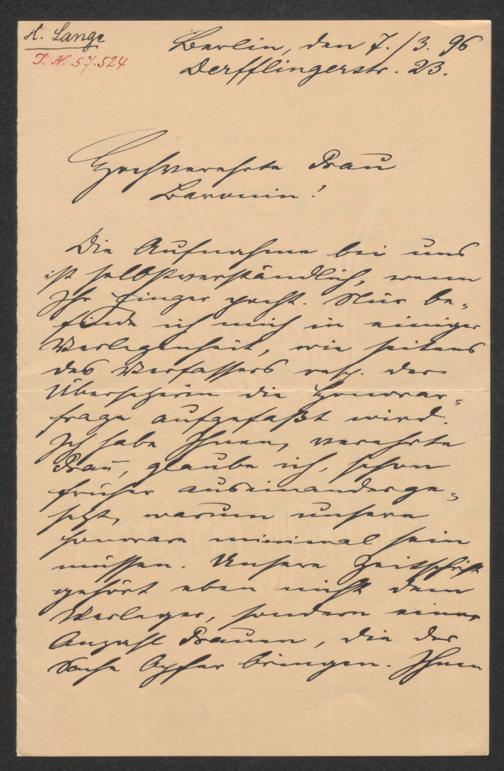 H. Lange
I. N. 57.524
Berlin, den 7./3. 96
Derfflingerstr. 23.
Hochverehrte Frau
Baronin!
Die Aufnahme bei uns
ist selbstverständlich, wenn
Ihr Finger geht. Nur be-
finde ich mich in einiger
Verlegenheit, wie seitens
des Verfassers resp. der
Übersetzerin die Honorar-
frage aufgefaßt wird.
Ich habe Ihnen, verehrte
Frau, glaube ich, schon
früher auseinanderge-
setzt, warum unsere
Honorare minimal sein
müssen. Unsere Zeitschrift
gehört eben nicht dem
Verleger, sondern einer
Anzahl Frauen, die der
Sache Opfer bringen. Ihnen